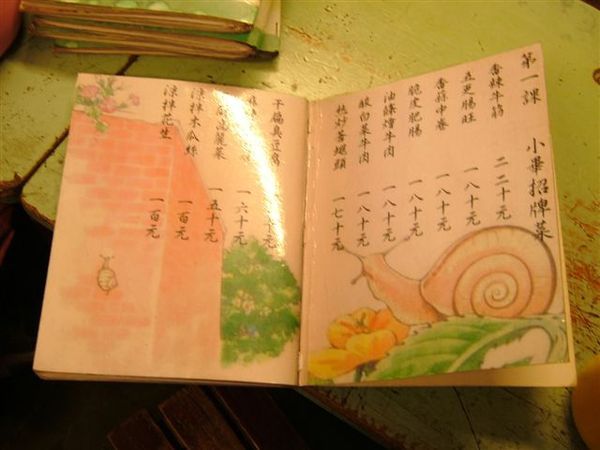 第一課 小畢招牌菜
香辣牛筋 二二十元
五更腸旺 一八十元
香蒜中卷 一八十元
脆皮肥腸 一八十元
油條燴牛肉 一八十元
酸白菜牛肉 一八十元
炒香螺頭 一七十元
干扁臭豆腐 十元
一六十元
麗菜 一五十元
涼拌木瓜絲 一百元
涼拌花生 一百元